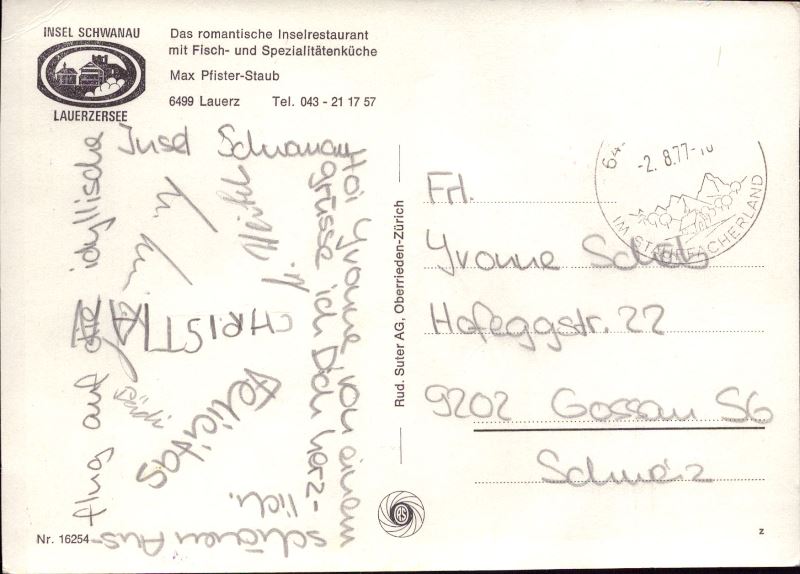 INSEL SCHWANAU
LAUERZERSEE
Das romantische Inselrestaurant
mit Fisch- und Spezialitätenküche
Max Pfister-Staub
6499 Lauerz Tel. 043 - 21 17 57
Hoi Yvonne von einem
schönen Aus-
flug auf die idyllische
Insel Schwanau
grüsse ich Dich herz-
lich.
CHRISTIAN
Felicitas
Dädi
Nr. 16254
Rud. Suter AG, Oberrieden-Zürich
RS
64
-2.8.77-
IM STAUFFACHERLAND
Frl.
Yvonne
Hofeggstr. 22
9202 Gossau SG
Schweiz
z